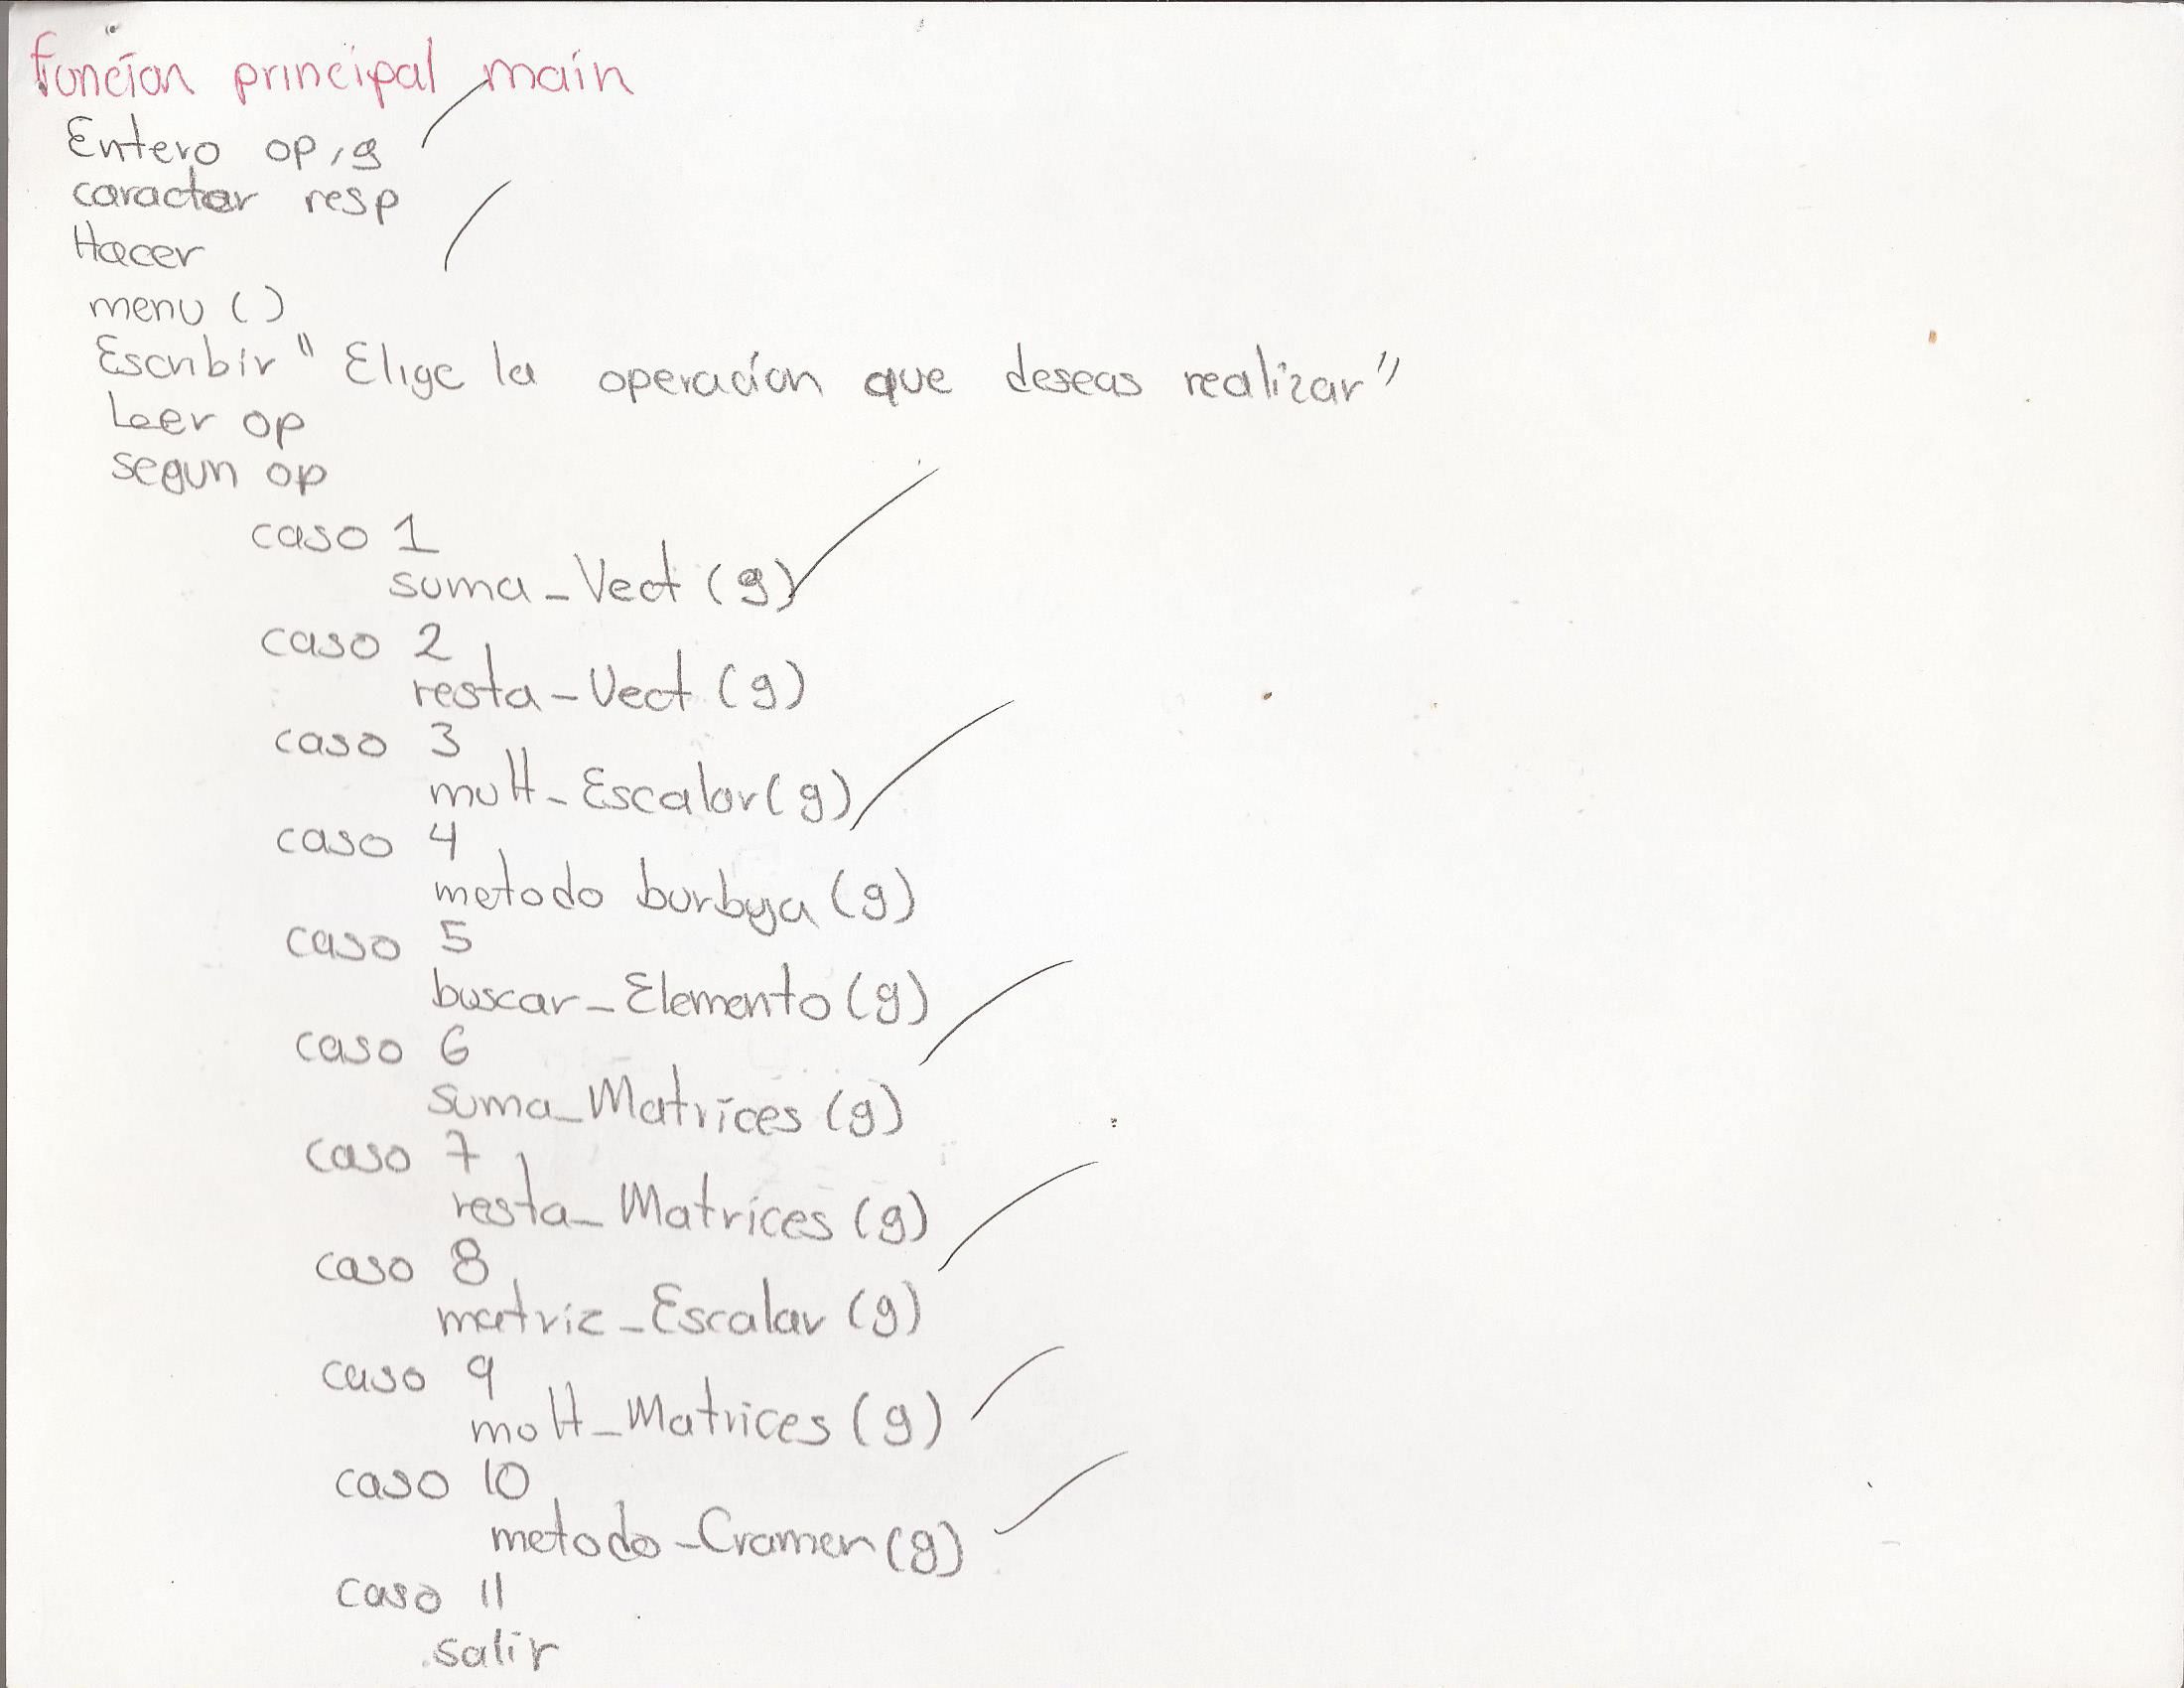 funcion principal main
Entero op, g
caracter resp
Hacer
menu ( )
Escribir " Elige la operacion que deseas realizar"
Leer op
segun op
caso 1
suma_Vect (g)
caso 2
resta_Vect (g)
caso 3
mult_Escalar (g)
caso 4
metodo burbuja (g)
caso 5
buscar_Elemento (g)
caso 6
suma_Matrices (g)
caso 7
resta_Matrices (g)
caso 8
matriz_Escalar (g)
caso 9
mult_Matrices (g)
caso 10
metodo_Cramer (g)
caso 11
salir